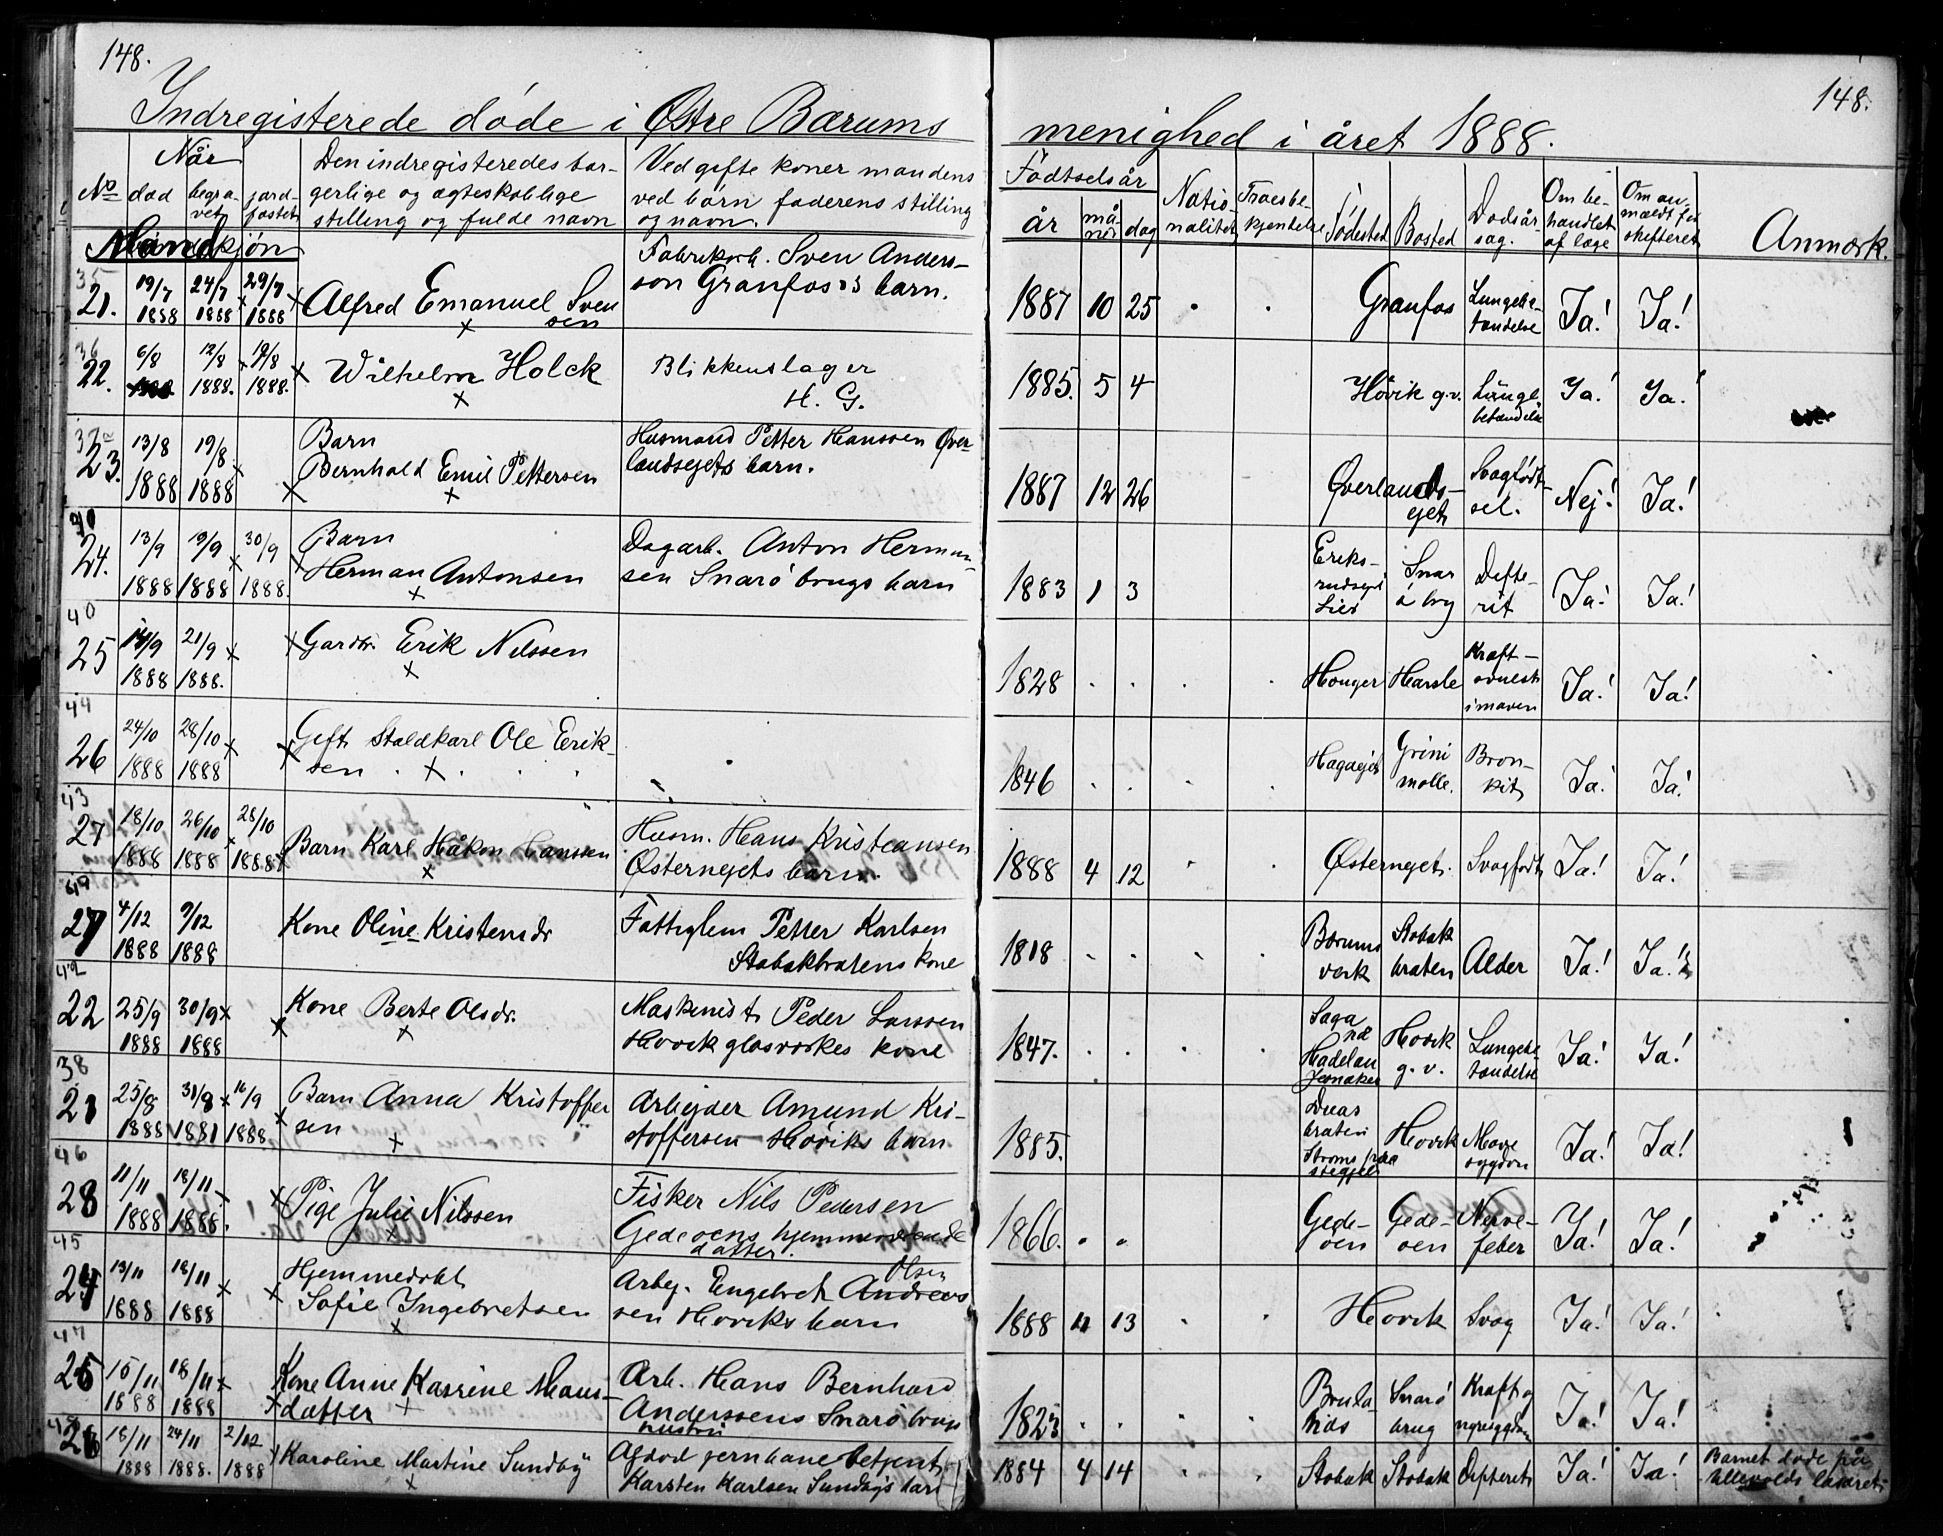 148.
148.
Indregisterede døde i Østre Bærums menighed i året 1888.
No
Når
død
begra-
vet
jord-
fæstet
Den indregisteredes bor-
gerlige og ægteskablige
stilling og fulde navn
Ved gifte koner mandens
ved børn faderens stilling
og navn.
Fødtselsår
år
må-
ned
dag
Natio-
nalitet
Troesbe-
kjendelse
Fødested
Bosted
Dødsår-
sag.
Om be-
handlet
af læge
Om an-
mældt for
skifteret
Anmærk.
Mandkjøn
35
21.
19/7
1888
24/7
1888
29/7
1888
Alfred Emanuel Sven
sen
Fabrikarb. Sven Anders-
son Granfos's barn.
1887 10 25
Granfos
Lungebe-
tændelse
Ja! Ja!
36
22.
6/8
12/8
1888.
19/8
1888.
Wilhelm Holck
Blikkenslager
H. G.
1885. 5 4
Høvik g.v.
Lunge
betændelse
Ja! Ja!
37
23.
13/8
1888
19/8
1888
Barn
Bernhald Emil Pettersen
Husmand Petter Hanssen Øver-
landsejets barn.
1887 12 26
Øverlands-
ejet
Svagfødt-
sel.
Nej! Ja!
24.
13/9
1888
19/9
1888
30/9
1888.
Barn
Herman Antonsen
Dagarb. Anton Herman-
sen Snarø brugs barn
1883 1 3
Eriks-
rudsejet
Lier
Snar
ø brg
Difte-
rit
Ja! Ja!
40
25
14/9
1888
21/9
1888.
Gardbr. Erik Nilssen
1828
Honger
Harsle
Kræft-
i maven
Ja! Ja!
44
26
24/10
1888
28/10
1888
Gift Staldkarl Ole Erik-
sen
1846
Hagaejet
Grini
mølle.
Bron-
kit
Ja! Ja!
43
27
18/10
1888
26/10
1888
28/10
1888
Barn Karl Håkon Hanssen
Husm. Hans Kristeansen
Østernejets barn.
1888 4 12
Østernejet.
Svagfødt
Ja! Ja!
49
27
4/12
1888
9/12
1888
Kone Oline Kristensdr
Fattiglem Petter Karlsen
Stabakbratens kone
1818
Bærums
værk
Stabæk
braten
Alder
Ja! Ja!
42
22
25/9
1888
30/9
1888
Kone Berte Olsdr.
Maskinist Peder Larssen
Høvik glasværkes kone
1847.
Saga
på
Hadelan
Jevnaker
Høvik
g. v.
Lungebe
tændelse
Ja! Ja!
38
21
25/8
1888
31/8
1881
16/9
1888
Barn Anna Kristoffer
sen
Arbejder Amund Kri-
stoffersen Høviks barn
1885.
braten
Høvik
Mave
sygdom
Ja! Ja!
46
28
11/11
1888
18/11
1888.
Pige Julie Nilssen
Fisker Nils Pedersen
Gedeøens hjemmeværende
datter.
1866.
Gede-
øen
Gede-
øen
Nerve-
feber
Ja! Ja!
45
24
13/11
1888
18/11
1888
Hjemmedøbt
Sofie Ingebretsen
Olsen
Arbej. Engebret Andreas
sen Høviks barn
1888 11 13
Høvik
Svag
Ja! Ja!
47
25
15/11
1888
18/11
1888
Kone Anne Katrine Hans-
datter
Arb. Hans Bernhard
Anderssens Snarø brugs
hustru
1823
Snarø
brug
Kræft og
nyresygdom
Ja! Ja!
26
18/11
1888
24/11
1888.
2/12
1888
Karoline Martine Sundby
Afdød jernbane betjent
Karsten Karlsen Sundby's barn
1884 4 14
Stabæk
Stabæk
Difterit
Ja! Ja!
Barnet døde på
Ullevolds lasaret